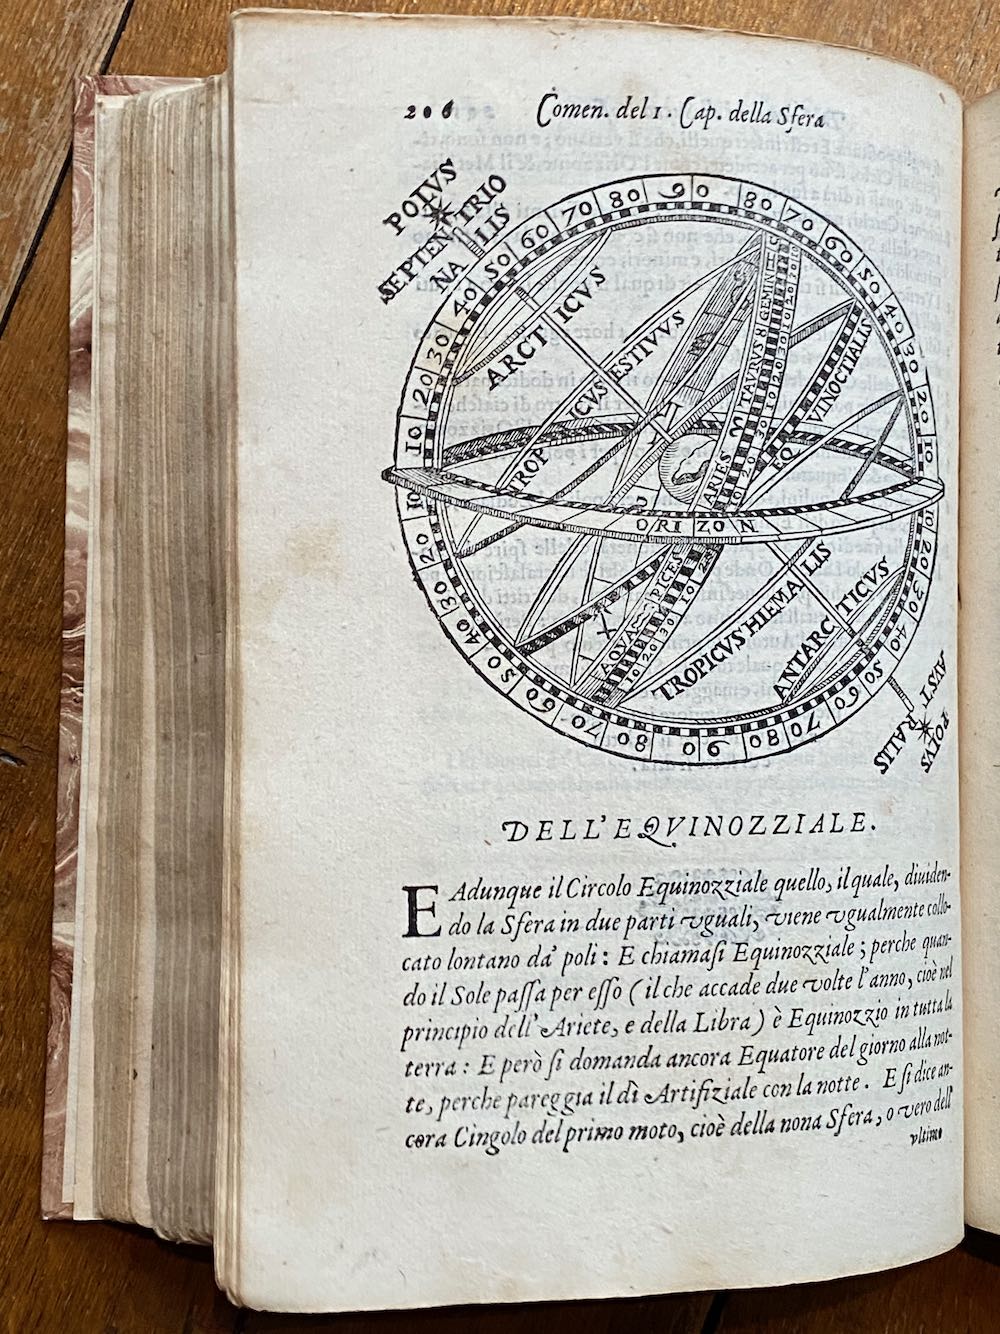 206 Comen. del 1. Cap. della Sfera
POLVS
SEPTENTRIO
NALIS
ARCTICVS
TROPICVS ESTIVVS
GEMINI
TAVRVS
ARIES
EQVINOCTIALIS
ORIZON
PICES
AQVA
TROPICVS HIEMALIS
ANTARCTICVS
POLVS
AVSTRALIS
10 20 30 40 50 60 70 80 90
90 80 70 60 50 40 30 20 10
10 20 30 40 50 60 70 80 90
90 80 70 60 50 40 30 20 10
DELL'EQVINOZZIALE.
E Adunque il Circolo Equinozziale quello, il quale, diuiden-
do la Sfera in due parti vguali, viene vgualmente collo-
cato lontano da' poli: E chiamasi Equinozziale; perche quan-
do il Sole passa per esso (il che accade due volte l'anno, cioè nel
principio dell'Ariete, e della Libra) è Equinozzio in tutta la
terra: E però si domanda ancora Equatore del giorno alla not-
te, perche pareggia il dì Artifiziale con la notte. E si dice an-
cora Cingolo del primo moto, cioè della nona Sfera, o vero dell'
vltimo